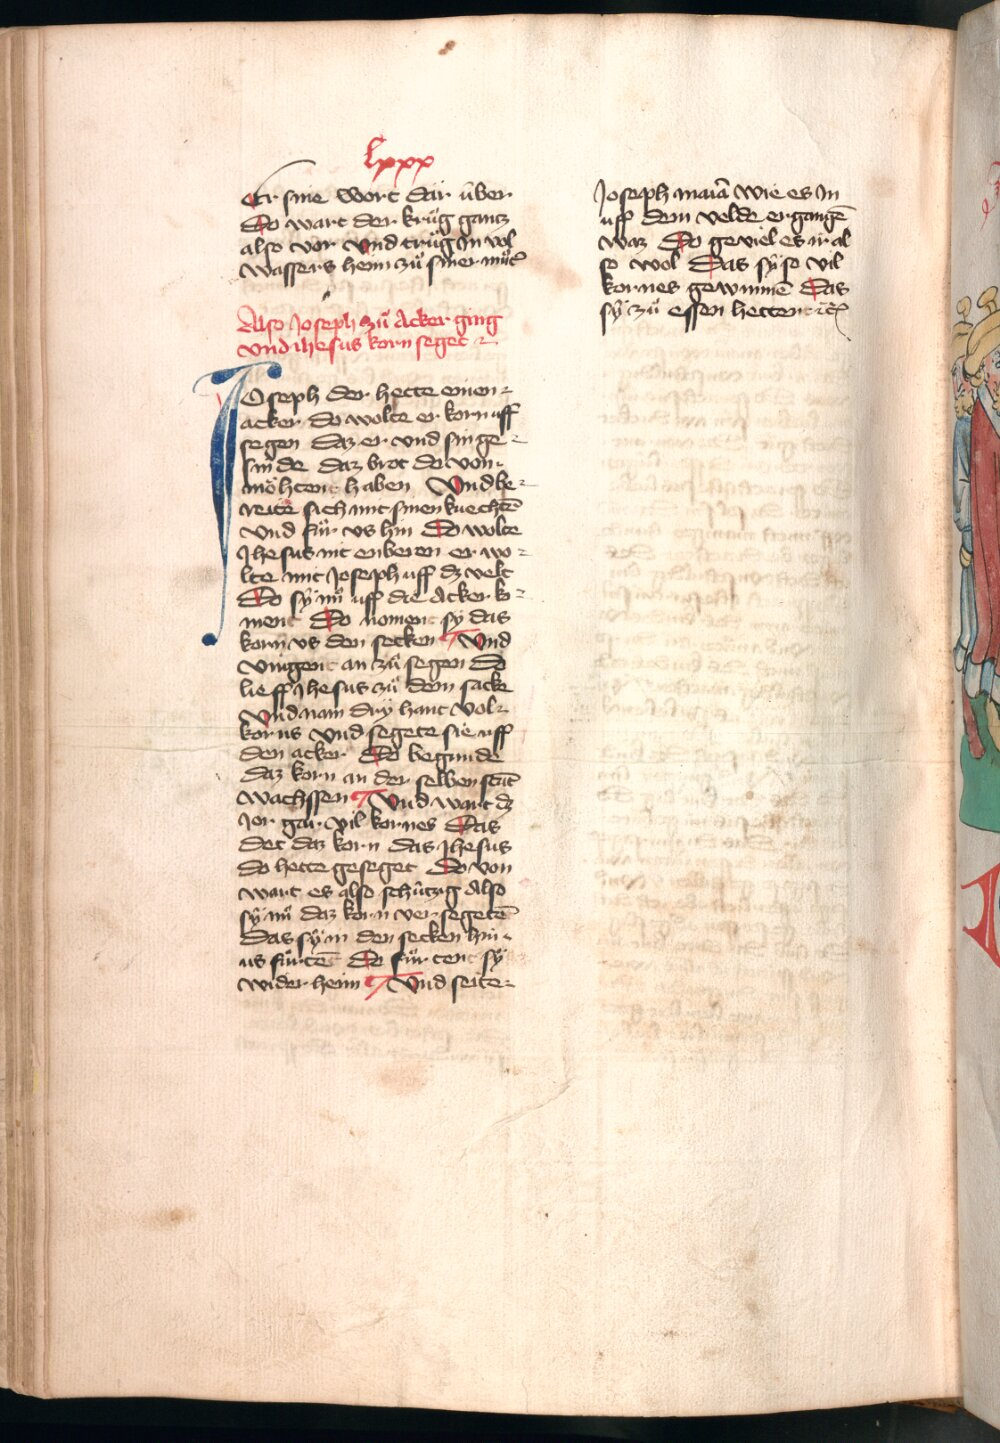 lxxx
Er sine wort dar über
Do wart der krüg gantz
also vor vnd trüg in vol
wassers heim zů siner můt̄
Also Joseph zů Acker ging
vnd ihesus korn seget
JOseph der hette einen
acker do wolte er korn uff
segen daz er vnd sin ge
sinde daz brot do von
möhtent haben Vnd be
reite sich mit sinen knechtē
vnd fůr vs hin Do wolte
Jhesus nit enberen er wo
lte mit Joseph uff dz velt
Do sÿ nů uff die Acker ko
ment Do noment sy das
korn vs den secken Vnd
vingent an zů segen Do
lieff Jhesus zů dem sacke
Vnd nam drÿ hant vol
korns vnd segete sie uff
den acker Do begunde
daz korn an der selben stat
wachssen Vnd wart dz
Jor gar vil kornes Das
det daz korn das Jhesus
do hette geseget Do von
wart es also schützig Also
sÿ nů daz korn ver segetē
Das sÿ in den secken hin
us fůrtē Do fůrtent sÿ
wider heim Vnd seite
Joseph maiā wie es in
uff dem velde ergangē
waz Do geviel es ir al
so wol Das sÿ so vil
kornes gewunnē Das
sÿ zů essen hettent ꝛc̄